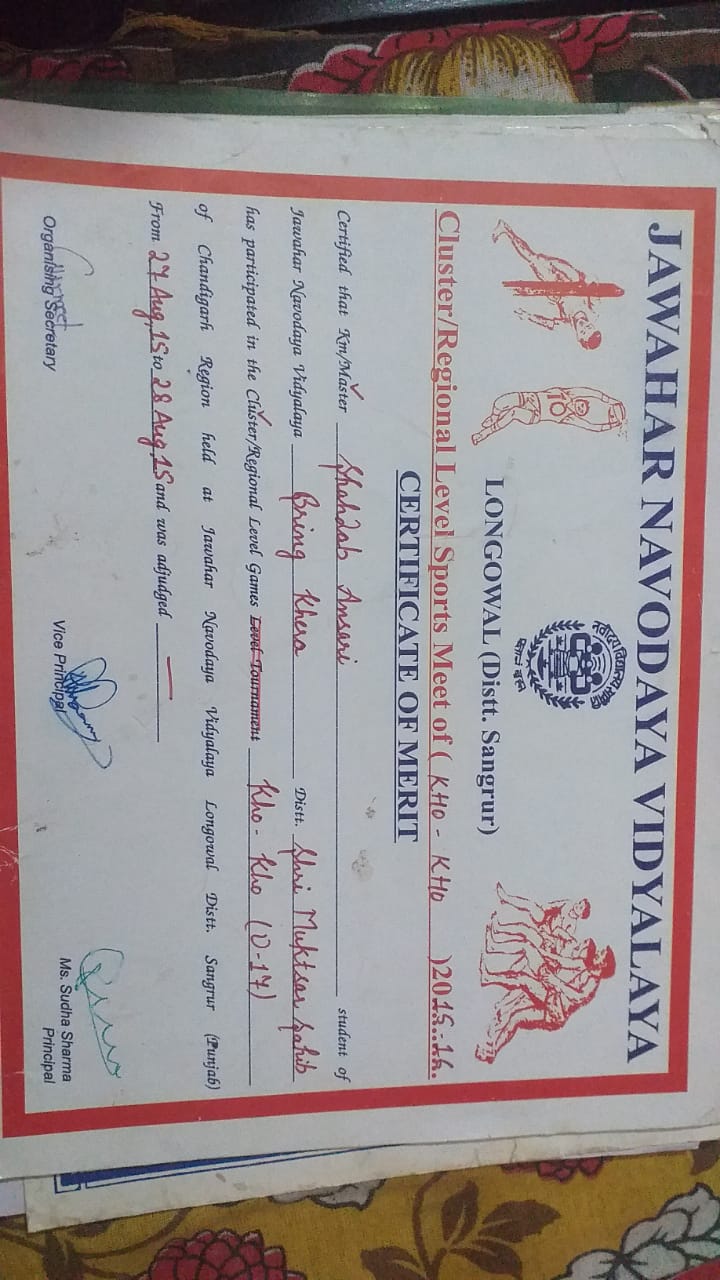 JAWAHAR NAVODAYA VIDYALAYA
LONGOWAL (Distt. Sangrur)
Cluster/Regional Level Sports Meet of ( KHO - KHO )2015-16.
CERTIFICATE OF MERIT
Certified that Km/Master Shahdab Ansari student of
Jawahar Navodaya Vidyalaya Bring Khera Distt. Shri Muktsar Sahib
has participated in the Cluster/Regional Level Games Level Tournament Kho - Kho (U-17)
of Chandigarh Region held at Jawahar Navodaya Vidyalaya Longowal Distt. Sangrur (Punjab)
From 27 Aug,15 to 28 Aug,15 and was adjudged —
Organising Secretary
Vice Principal
Ms. Sudha Sharma
Principal